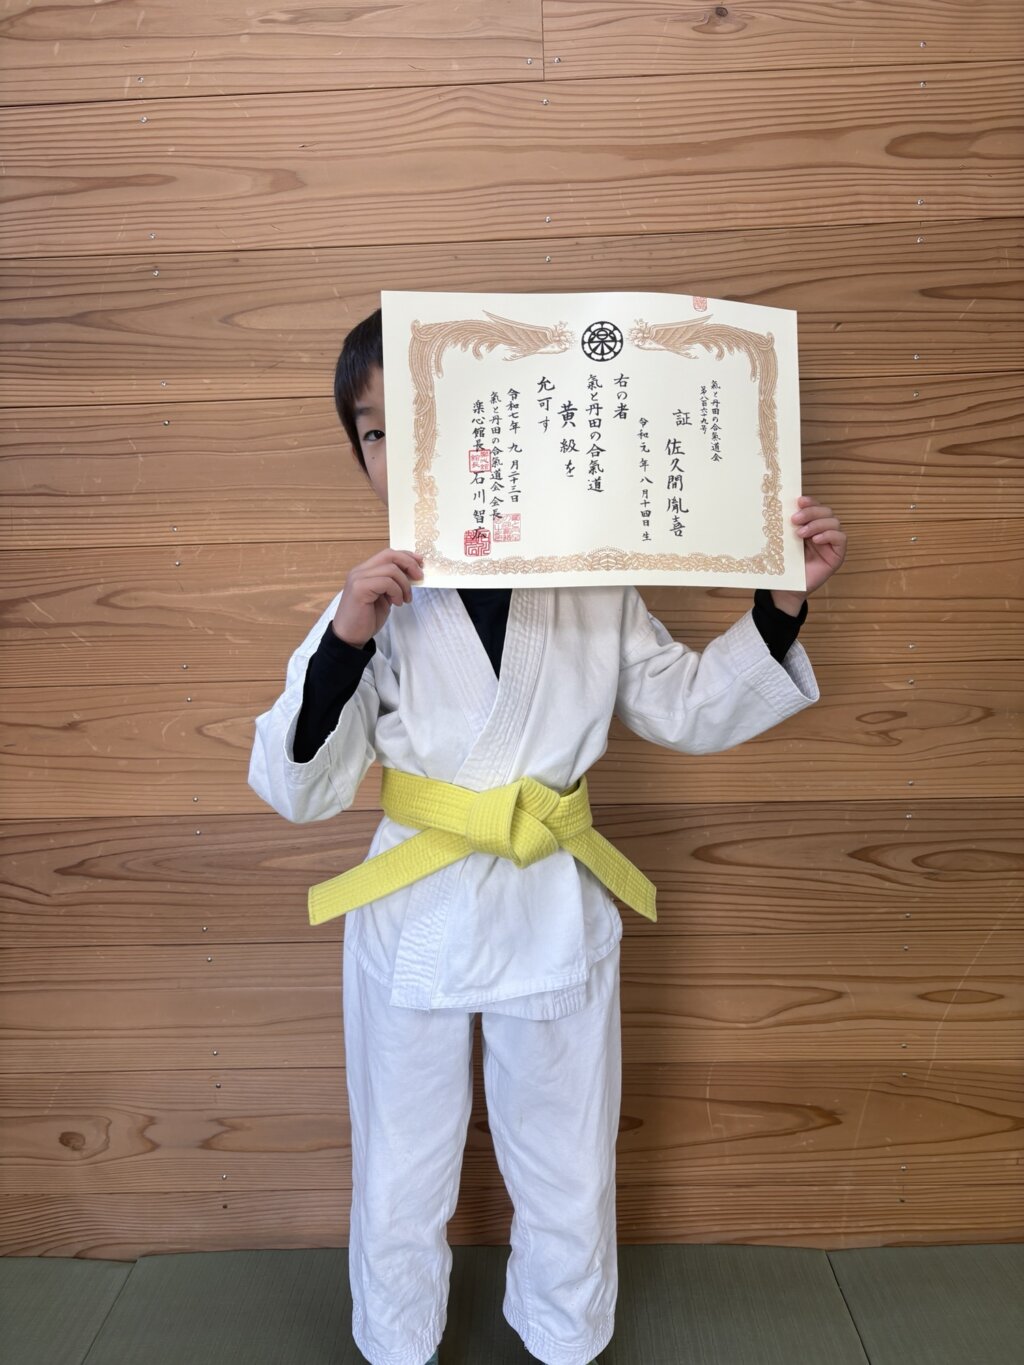 氣と丹田の合氣道会
第八百六十九号
証
佐久間胤喜
令和元年八月十四日生
右の者
氣と丹田の合氣道
黄級を
允可す
令和七年九月二十三日
氣と丹田の合氣道会会長
楽心館長 石川智広